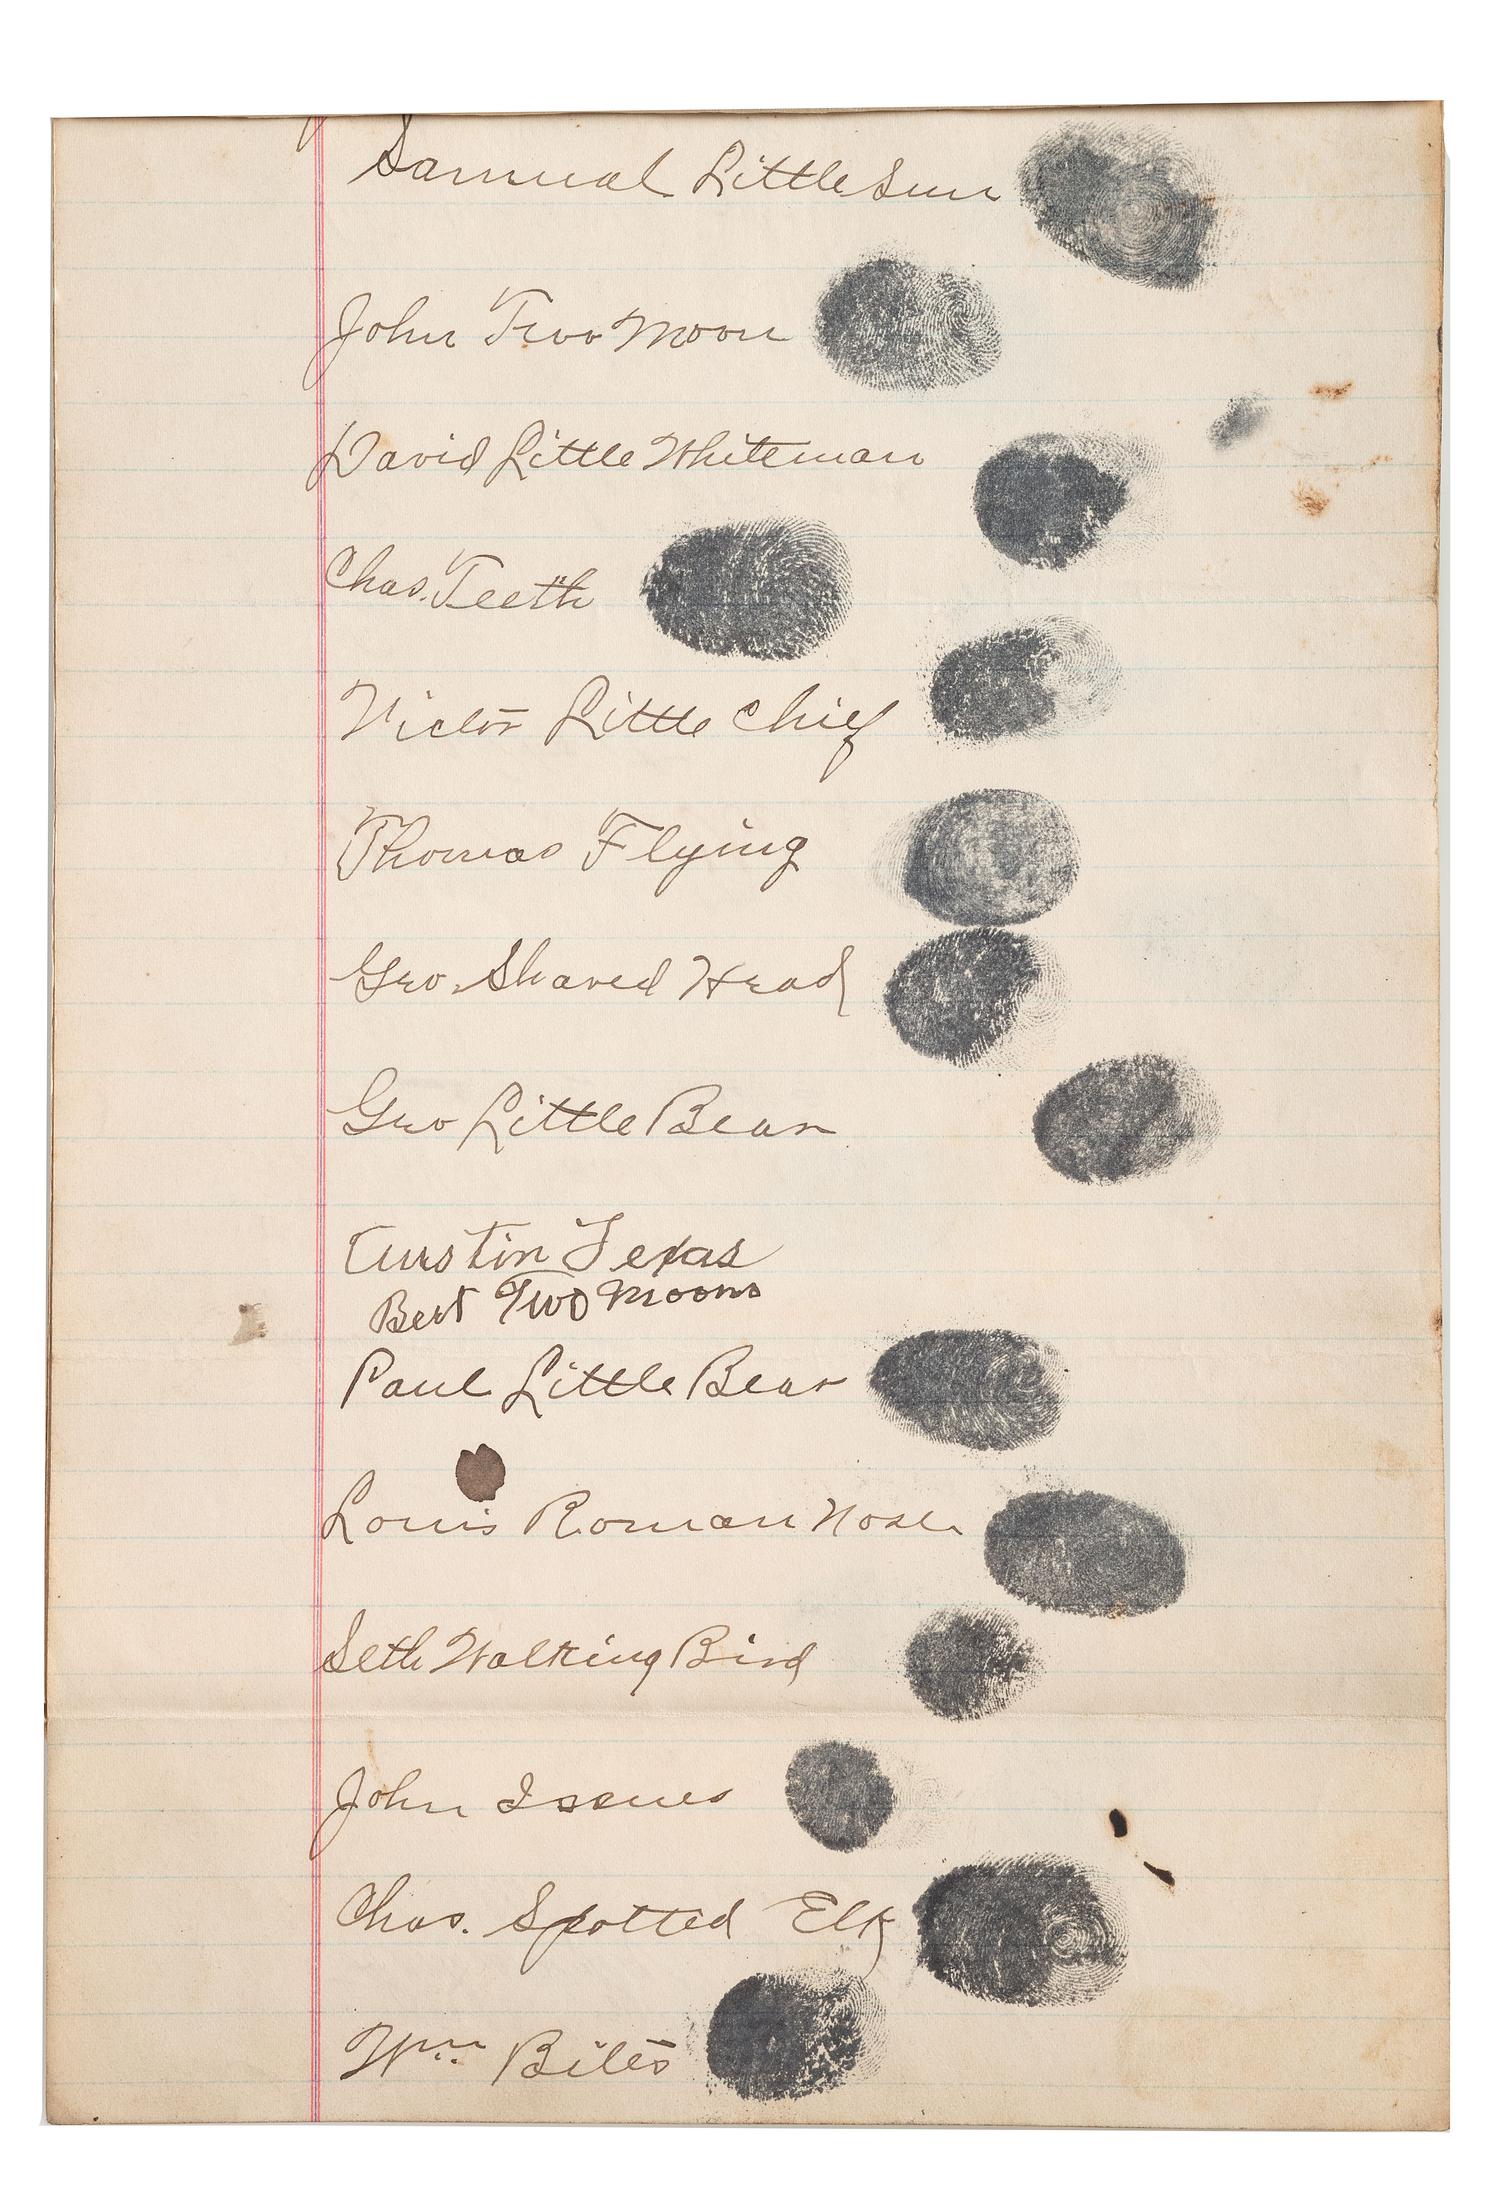 Samual Little Sun
John Two Moon
David Little Whiteman
Chas. Teeth
Victor Little Chief
Thomas Flying
Geo. Shaved Head
Geo Little Bear
Austin Texas
Bert Two Moons
Paul Little Bear
Louis Roman Nose
Seth Walking Bird
John Issues
Chas. Spotted Elk
Wm Bites